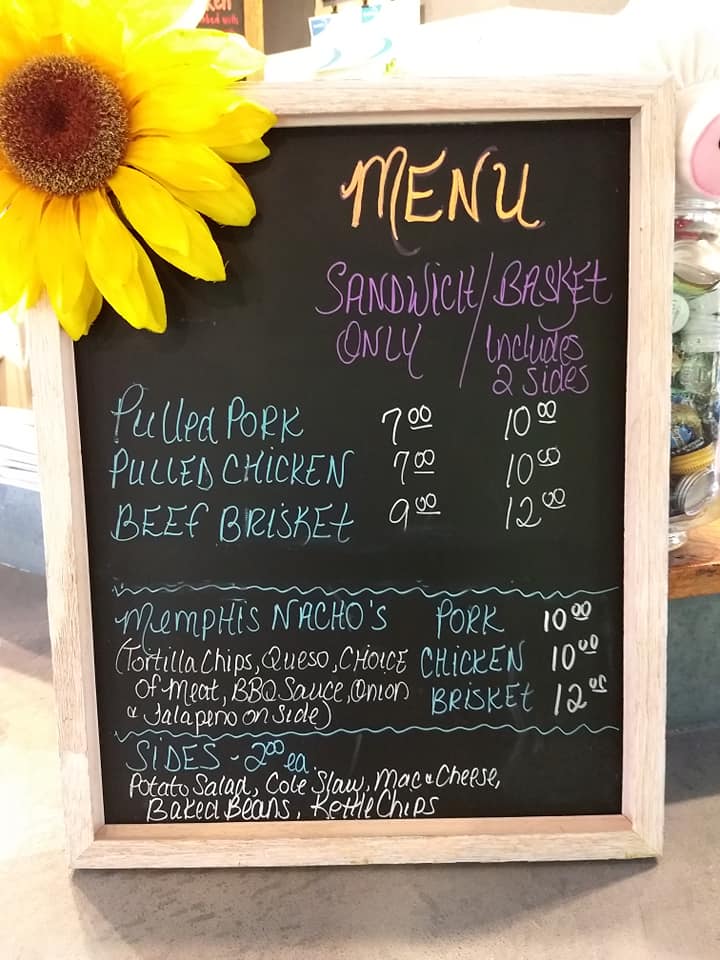 MENU
SANDWICH/BASKET
ONLY / Includes
2 sides
Pulled PORK 7.00 10.00
PULLED CHICKEN 7.00 10.00
BEEF BRISKET 9.00 12.00
MEMPHIS NACHO'S PORK 10.00
(Tortilla Chips, Queso, CHOICE CHICKEN 10.00
Of Meat, BBQ Sauce, Onion BRISKET 12.00
& Jalapeno on Side)
SIDES - 2.00 ea.
Potato Salad, Cole Slaw, Mac & Cheese,
Baked Beans, Kettle Chips